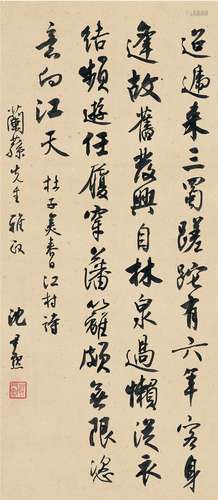 迢遞来三蜀蹉跎有六年客身
逢故舊發興自林泉過懶從衣
結頻遊任履穿藩籬頗無限恣
意向江天 杜子美春日江村詩
蘭蓀先生雅政 沈尹默